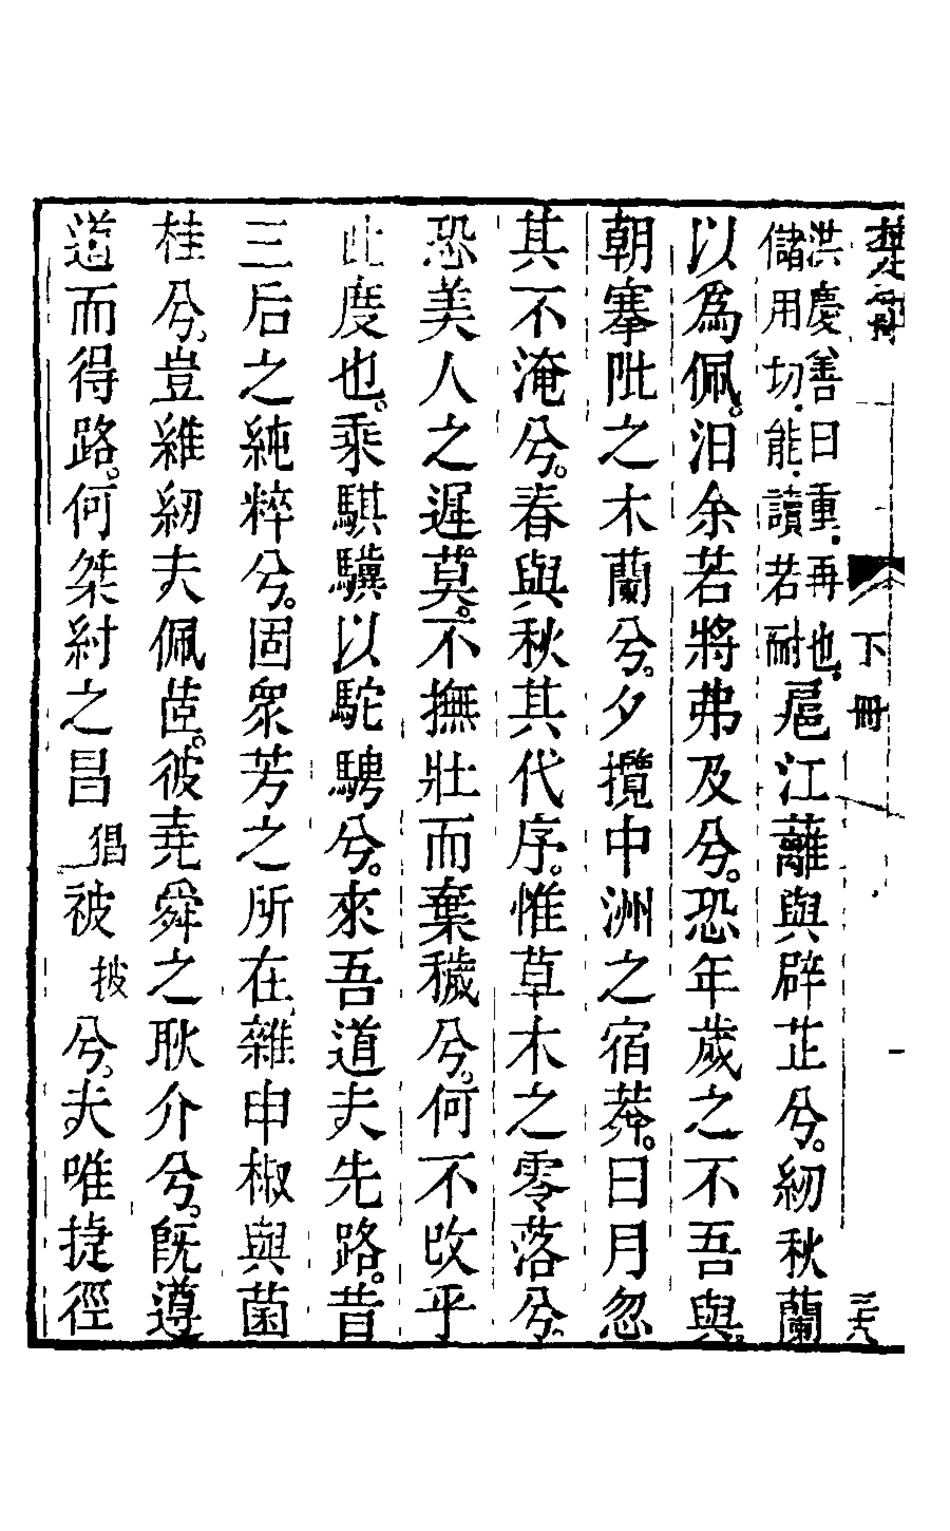 下冊
洪慶善曰重.再也.
儲用切.能.讀若耐
扈江蘺與辟芷兮。紉秋蘭
以爲佩。汨余若將弗及兮。恐年歲之不吾與。
朝搴阰之木蘭兮。夕攬中洲之宿莽。日月忽
其不淹兮。春與秋其代序。惟草木之零落兮。
恐美人之遲莫。不撫壯而棄穢兮。何不改乎
此度也。乘騏驥以駝騁兮。來吾道夫先路。昔
三后之純粹兮。固衆芳之所在。雜申椒與菌
桂兮。豈維紉夫佩茝。彼堯舜之耿介兮。旣遵
道而得路。何桀紂之昌猖被披兮。夫唯捷徑